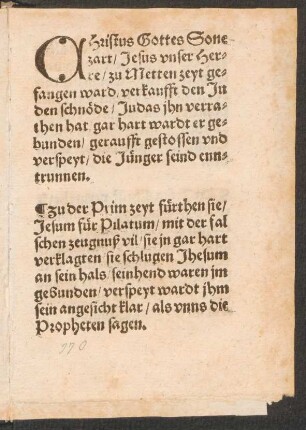 CHristus Gottes Sone
zart/ Jesus vnser Her-
re/ zu Metten zeyt ge-
fangen ward/ verkaufft den Ju
den schnöde/ Judas jhn verra-
then hat gar hart wardt er ge-
bunden/ geraufft gestossen vnd
verspeyt/ die Jünger seind ennt-
trunnen.
¶Zu der Prim zeyt fürthen sie/
Jesum für Pilatum/ mit der fal
schen zeugnuß vil/ sie jn gar hart
verklagten/ sie schlugen Jhesum
an sein hals/ sein hend waren jm
gebunden/ verspeyt wardt jhm
sein angesicht klar/ als vnns die
Propheten sagen.
770